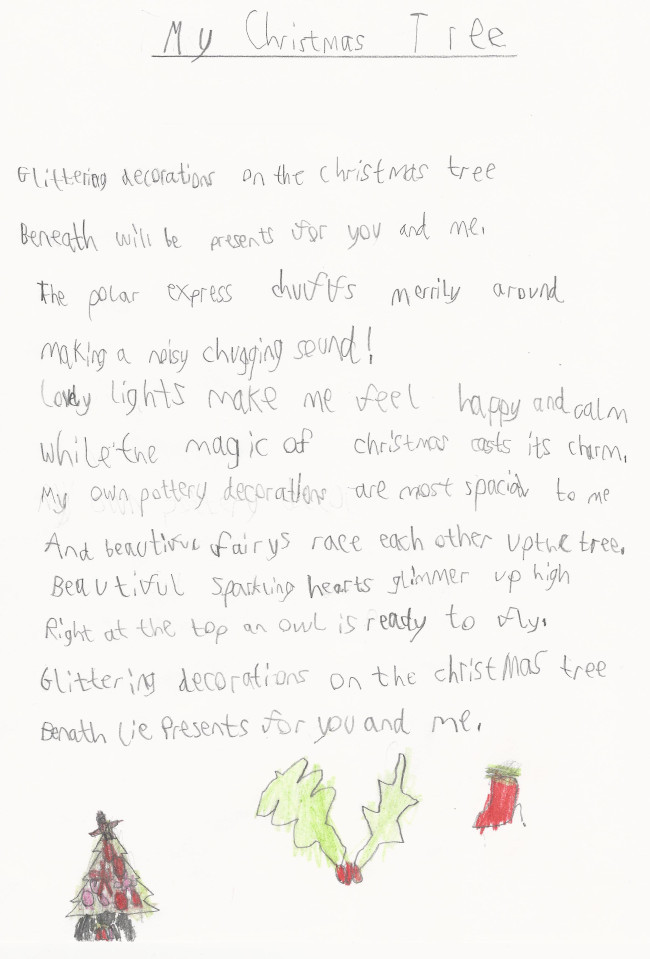 My Christmas Tree
Glittering decorations on the christmas tree
Beneath will be presents for you and me.
The polar express chuffs merrily around
making a noisy chugging sound!
Lovely lights make me feel happy and calm
while the magic of christmas casts its charm.
My own pottery decorations are most spacial to me
And beautiful fairys race each other up the tree.
Beautiful sparkling hearts glimmer up high
Right at the top an owl is ready to fly.
Glittering decorations on the christmas tree
Benath lie presents for you and me.